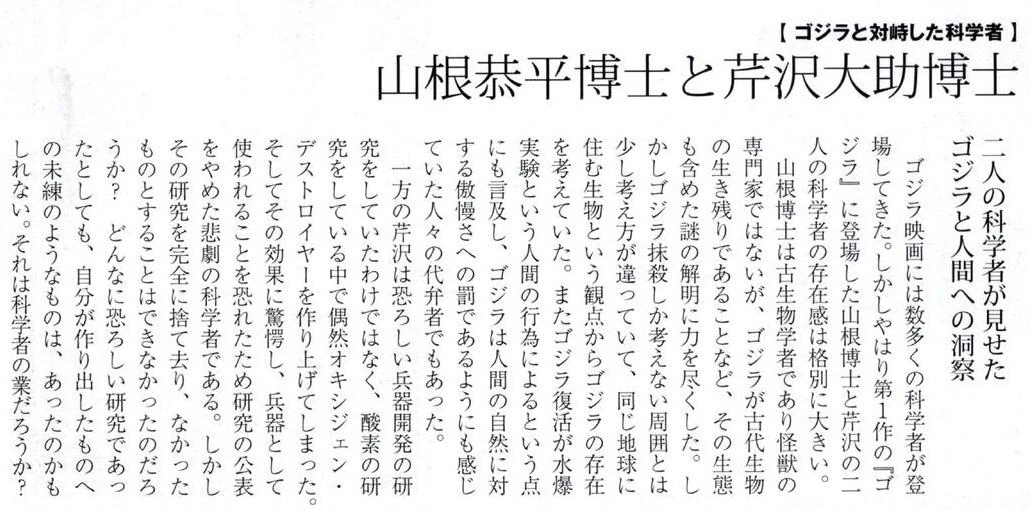 【ゴジラと対峙した科学者】
山根恭平博士と芹沢大助博士
二人の科学者が見せた
ゴジラと人間への洞察
ゴジラ映画には数多くの科学者が登
場してきた。しかしやはり第1作の『ゴ
ジラ』に登場した山根博士と芹沢の二
人の科学者の存在感は格別に大きい。
山根博士は古生物学者であり怪獣の
専門家ではないが、ゴジラが古代生物
の生き残りであることなど、その生態
も含めた謎の解明に力を尽くした。し
かしゴジラ抹殺しか考えない周囲とは
少し考え方が違っていて、同じ地球に
住む生物という観点からゴジラの存在
を考えていた。またゴジラ復活が水爆
実験という人間の行為によるという点
にも言及し、ゴジラは人間の自然に対
する傲慢さへの罰であるようにも感じ
ていた人々の代弁者でもあった。
一方の芹沢は恐ろしい兵器開発の研
究をしていたわけではなく、酸素の研
究をしている中で偶然オキシジェン・
デストロイヤーを作り上げてしまった。
そしてその効果に驚愕し、兵器として
使われることを恐れたため研究の公表
をやめた悲劇の科学者である。しかし
その研究を完全に捨て去り、なかった
ものとすることはできなかったのだろ
うか? どんなに恐ろしい研究であっ
たとしても、自分が作り出したものへ
の未練のようなものは、あったのかも
しれない。それは科学者の業だろうか?